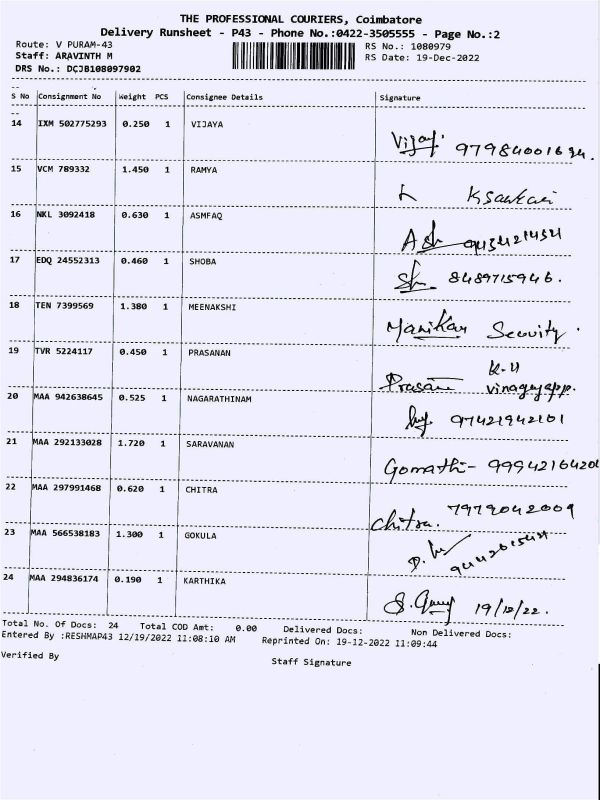 THE PROFESSIONAL COURIERS, Coimbatore
Delivery Runsheet - P43 - Phone No.:0422-3505555 - Page No.:2
Route: V PURAM-43
RS No.: 1080979
Staff: ARAVINTH M
RS Date: 19-Dec-2022
DRS No.: DCJB108097902
S No Consignment No Weight PCS Consignee Details Signature
14 IXM 502775293 0.250 1 VIJAYA
15 VCM 789332 1.450 1 RAMYA
16 NKL 3092418 0.630 1 ASMFAQ
17 EDQ 24552313 0.460 1 SHOBA
8489715946.
18 TEN 7399569 1.380 1 MEENAKSHI
Manikan Security.
19 TVR 5224117 0.450 1 PRASANAN
20 MAA 942638645 0.525 1 NAGARATHINAM
97421942101
21 MAA 292133028 1.720 1 SARAVANAN
Gomathi - 9994216420
22 MAA 297991468 0.620 1 CHITRA
Chitra. 7979042009
23 MAA 566538183 1.300 1 GOKULA
24 MAA 294836174 0.190 1 KARTHIKA
19/12/22.
Total No. Of Docs: 24 Total COD Amt: 0.00 Delivered Docs: Non Delivered Docs:
Entered By :RESHMAP43 12/19/2022 11:08:10 AM Reprinted On: 19-12-2022 11:09:44
Verified By
Staff Signature